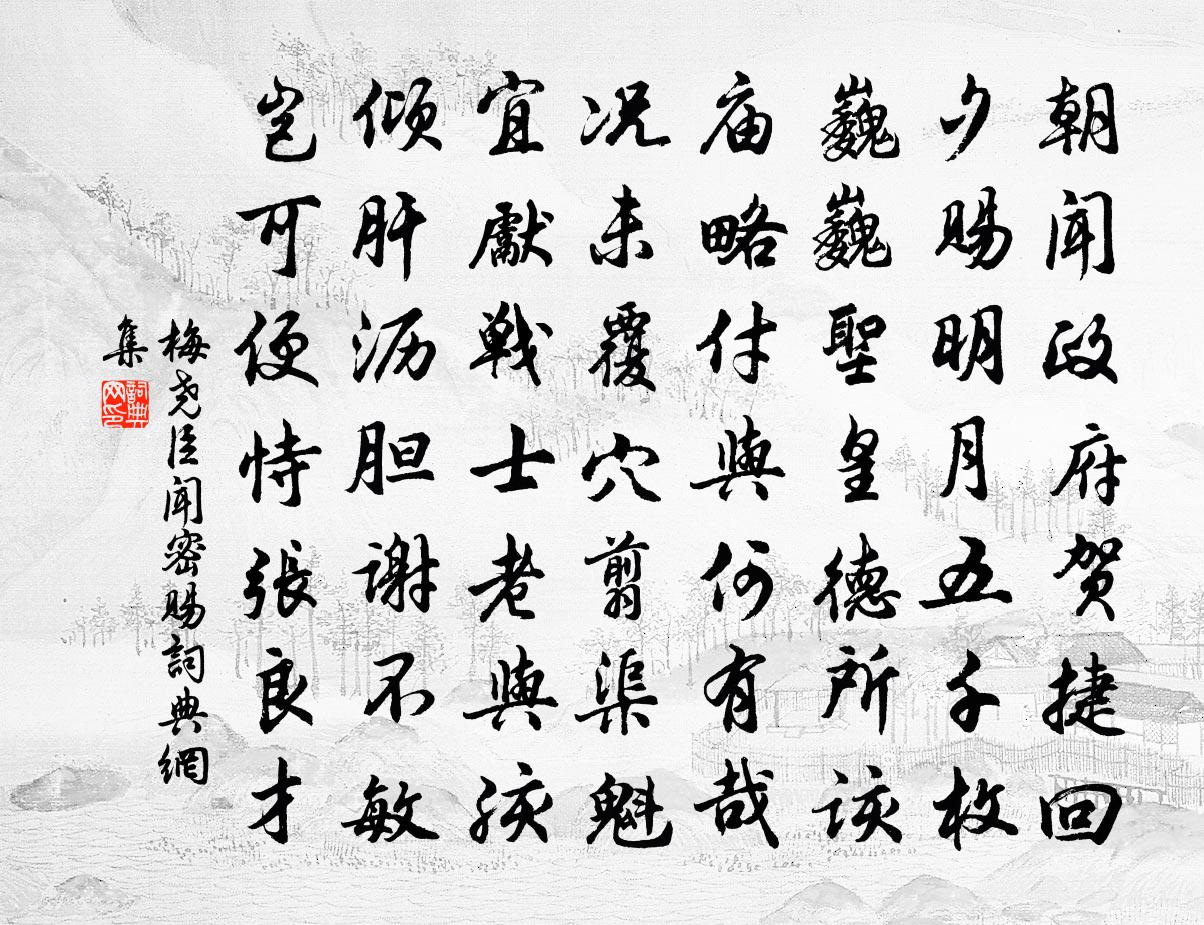 朝闻政府贺捷回
夕赐明月五千枚
巍巍聖皇德所该
庙略付與何有哉
况未覆穴剪渠魁
宜獻戦士老與孩
倾肝沥胆谢不敏
岂可便恃張良才
梅尧臣闻密赐詞典網
集
詞典
网印